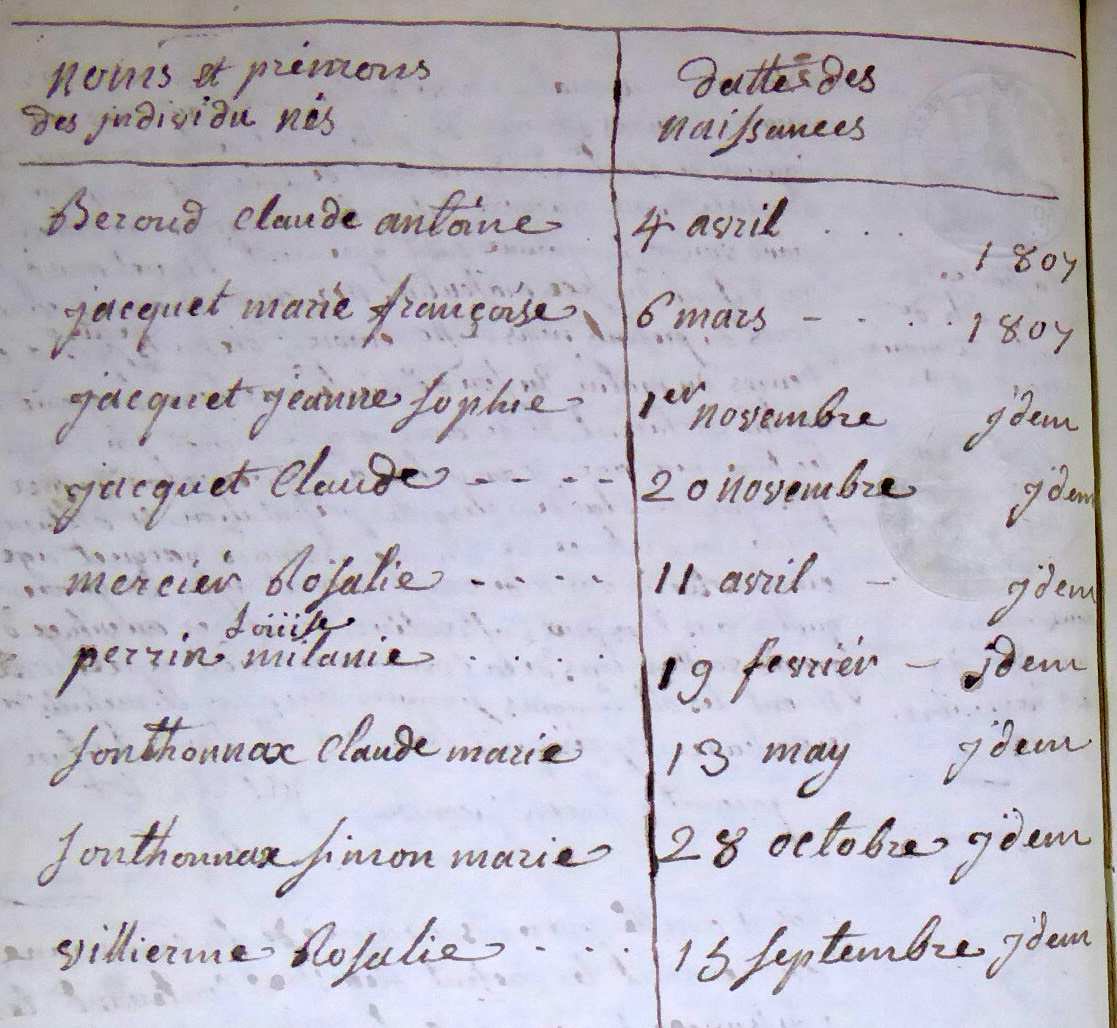 noms et prénons
des jndividu nés
dattes des
naissances
Beroud claude antoine 4 avril . . . . 1807
jacquet marie françoise 6 mars - . . . . 1807
jacquet jeanne sophie 1er novembre jdem
jacquet Claude - - - - 20 novembre jdem
mercier Rosalie - - - - 11 avril - jdem
Louise
perrin milanie . . . . 19 fevriér - jdem
Sonthonnax Claude marie 13 may jdem
Sonthonnax simon marie 28 octobre jdem
villierme Rosalie - - - 15 septembre jdem